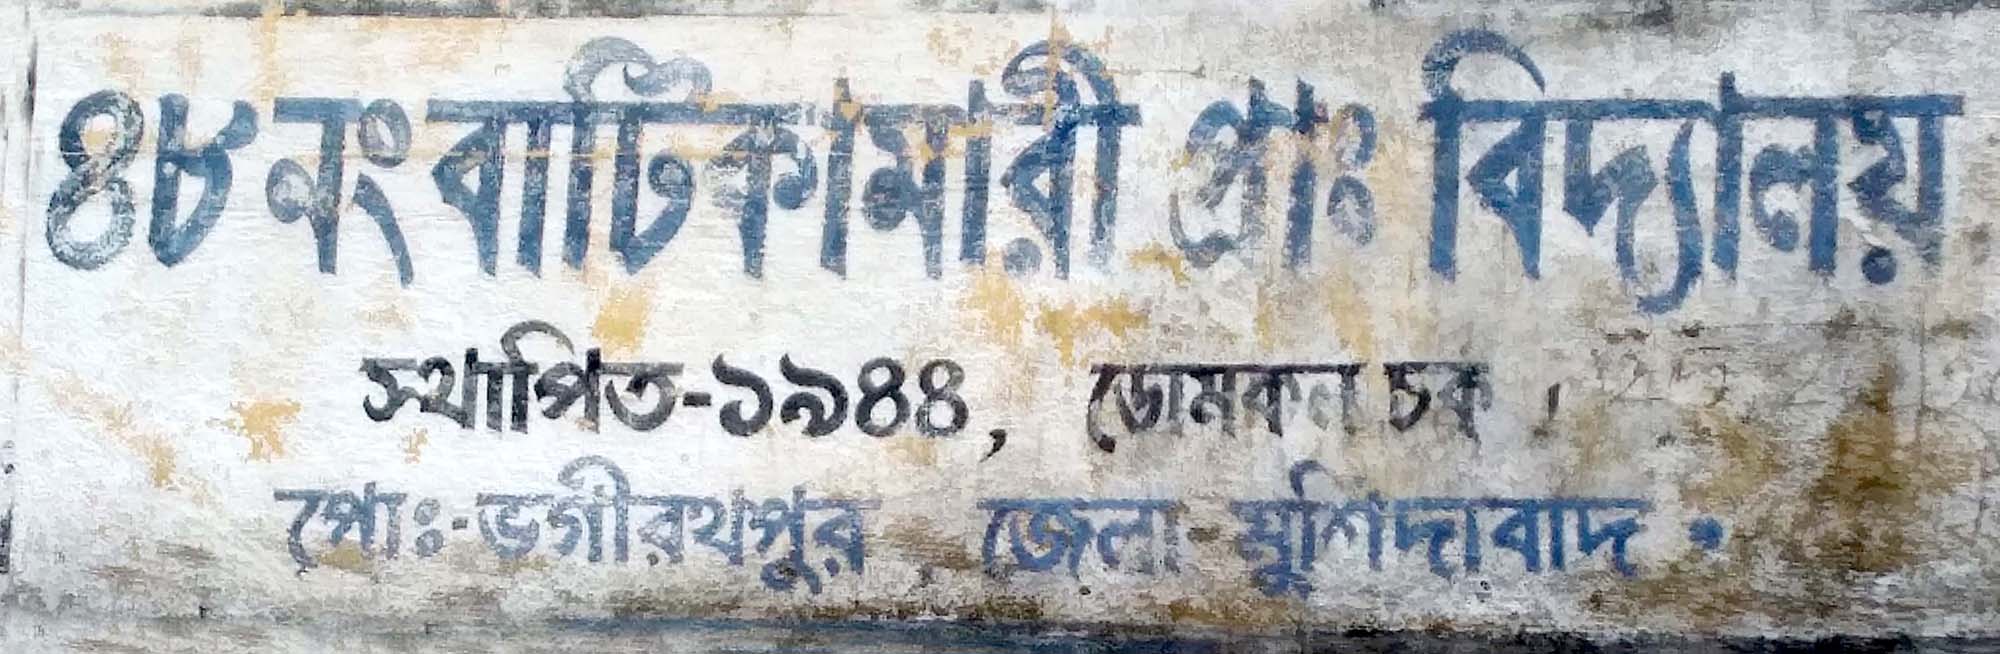 ৪৮ নং বাটিকামারী প্রাঃ বিদ্যালয়
স্থাপিত-১৯৪৪, ডোমকল চক ।
পোঃ-ভগীরথপুর জেলা-মুর্শিদাবাদ •